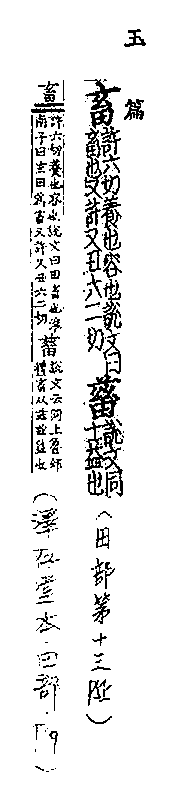 玉篇
畜 許六切養也容也說文曰田畜也又許又丑六二切 蓄 說文同上茲益也 (田部第十三 )
畜 許六切養也容也說文曰田畜也淮南子曰玄田爲畜又許又丑六二切 蓄 說文云同上魯郊禮畜从茲茲益也 (澤存堂本田部)